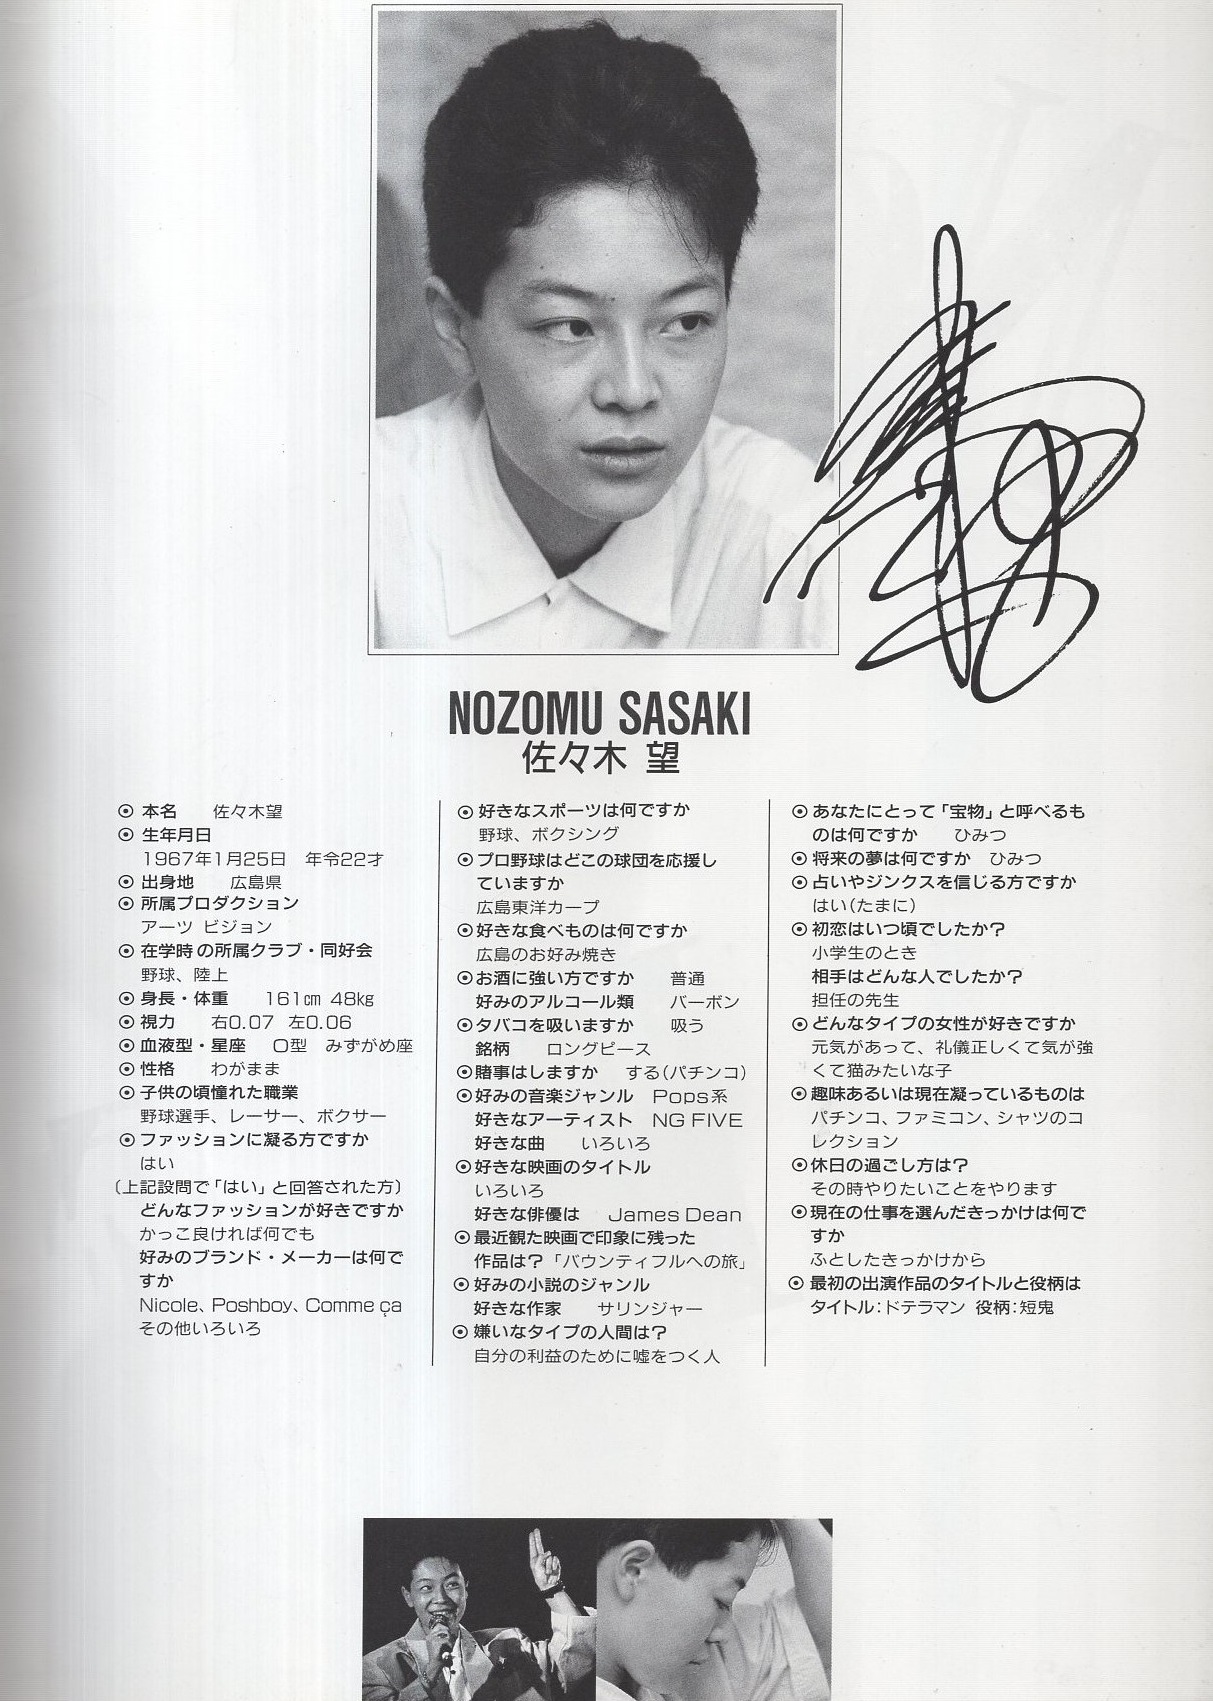 NOZOMU SASAKI
佐々木 望
⦿ 本名　佐々木望
⦿ 生年月日
1967年1月25日　年令22才
⦿ 出身地　広島県
⦿ 所属プロダクション
アーツ ビジョン
⦿ 在学時の所属クラブ・同好会
野球、陸上
⦿ 身長・体重　161㎝ 48㎏
⦿ 視力　右0.07 左0.06
⦿ 血液型・星座　O型　みずがめ座
⦿ 性格　わがまま
⦿ 子供の頃憧れた職業
野球選手、レーサー、ボクサー
⦿ ファッションに凝る方ですか
はい
〔上記設問で「はい」と回答された方〕
どんなファッションが好きですか
かっこ良ければ何でも
好みのブランド・メーカーは何で
すか
Nicole、Poshboy、Comme ça
その他いろいろ
⦿ 好きなスポーツは何ですか
野球、ボクシング
⦿ プロ野球はどこの球団を応援し
ていますか
広島東洋カープ
⦿ 好きな食べものは何ですか
広島のお好み焼き
⦿ お酒に強い方ですか　普通
好みのアルコール類　バーボン
⦿ タバコを吸いますか　吸う
銘柄　ロングピース
⦿ 賭事はしますか　する(パチンコ)
⦿ 好みの音楽ジャンル　Pops系
好きなアーティスト　NG FIVE
好きな曲　いろいろ
⦿ 好きな映画のタイトル
いろいろ
好きな俳優は　James Dean
⦿ 最近観た映画で印象に残った
作品は？「バウンティフルへの旅」
⦿ 好みの小説のジャンル
好きな作家　サリンジャー
⦿ 嫌いなタイプの人間は？
自分の利益のために嘘をつく人
⦿ あなたにとって「宝物」と呼べるも
のは何ですか　ひみつ
⦿ 将来の夢は何ですか　ひみつ
⦿ 占いやジンクスを信じる方ですか
はい(たまに)
⦿ 初恋はいつ頃でしたか？
小学生のとき
相手はどんな人でしたか？
担任の先生
⦿ どんなタイプの女性が好きですか
元気があって、礼儀正しくて気が強
くて猫みたいな子
⦿ 趣味あるいは現在凝っているものは
パチンコ、ファミコン、シャツのコ
レクション
⦿ 休日の過ごし方は？
その時やりたいことをやります
⦿ 現在の仕事を選んだきっかけは何で
すか
ふとしたきっかけから
⦿ 最初の出演作品のタイトルと役柄は
タイトル：ドテラマン 役柄：短鬼